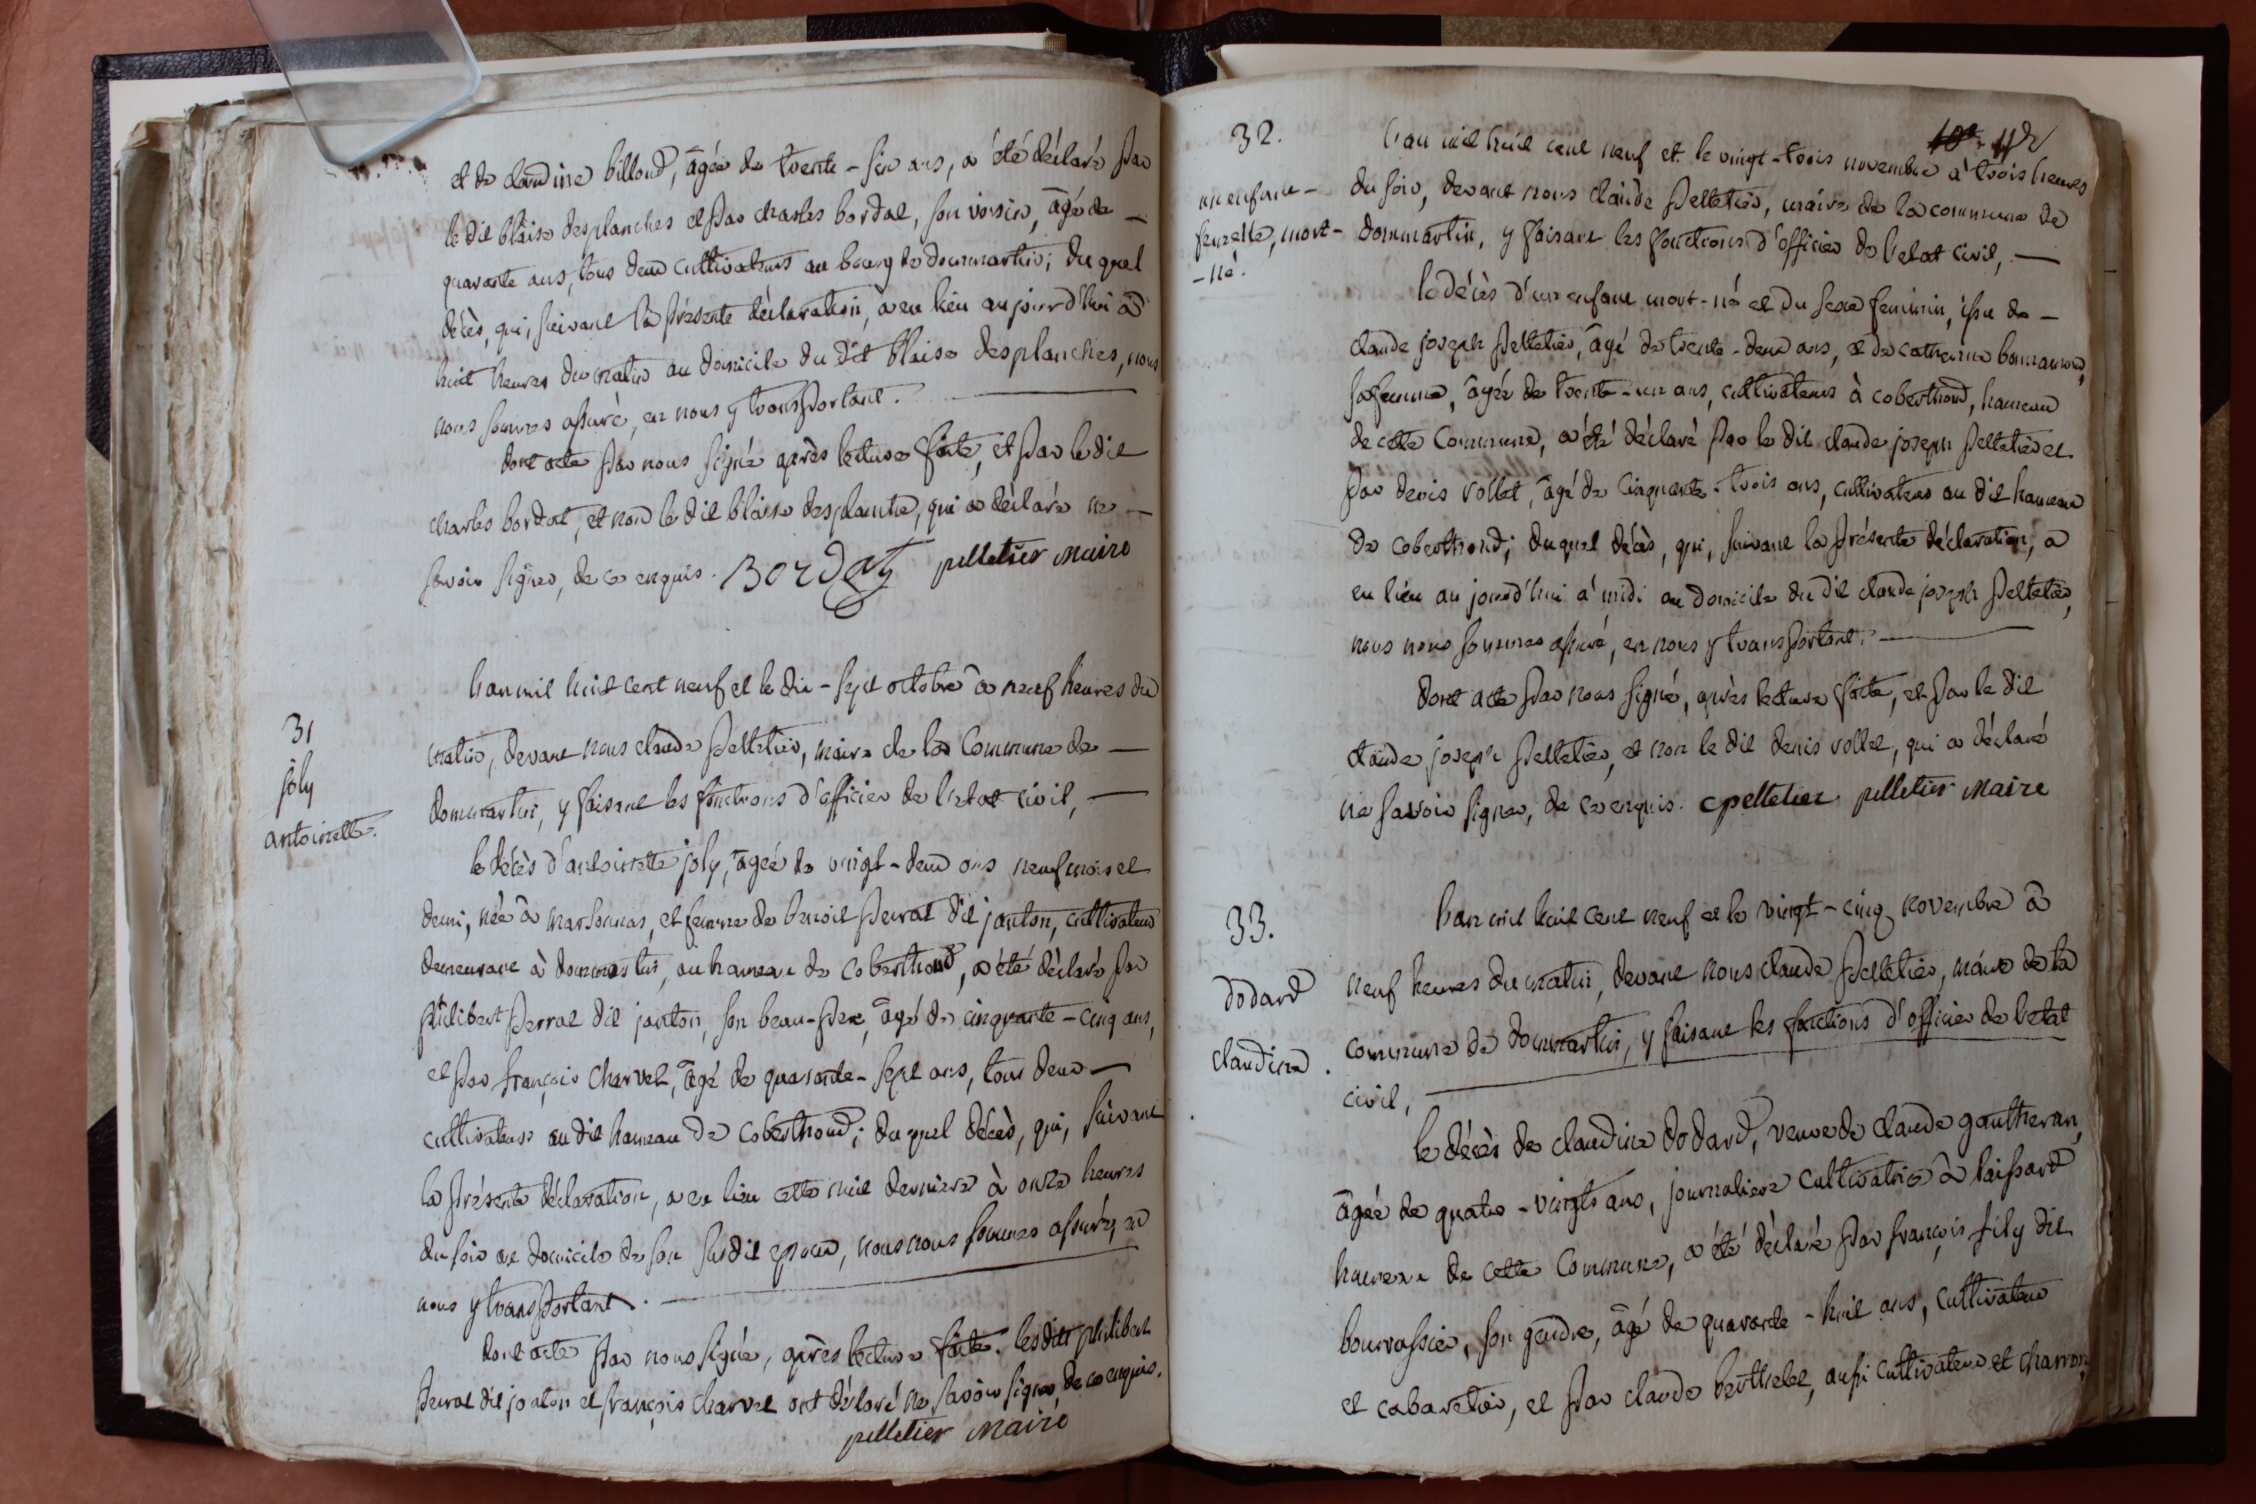 et de claudine billoud, âgée de trente-six ans, a été déclaré par
le dit blaise desplanches et par charles bordat, son voisin, âgé de —
quarante ans, tous deux cultivateurs au bourg de dommartin; du quel
décès, qui, suivant la présente déclaration, a eu lieu aujourd'hui à
huit heures du matin au domicile du dit blaise desplanches, nous
nous sommes assuré, en nous y transportant. —
dont acte par nous signé après lecture faite, et par le dit
charles bordat, et non le dit blaise desplanche, qui a déclaré ne —
savoir signer, de ce enquis. Bordat pelletier maire
31
joly
antoinette.
L'an mil huit cent neuf et le dix-sept octobre à neuf heures du
matin, devant nous claude pelletier, maire de la Commune de —
dommartin, y faisant les fonctions d'officier de l'etat civil, —
le décès d'antoinette joly, âgée de vingt-deux ans neuf mois et
demi, née à marsonnas, et femme de benoit perrat dit janton, cultivateur
demeurant à dommartin, au hameau de coberthoud, a été déclaré par
philibert perrat dit janton, son beau-père, âgé de cinquante-cinq ans,
et par françois charvet, âgé de quarante-sept ans, tous deux —
cultivateurs au dit hameau de coberthoud; du quel décès, qui, suivant
la présente déclaration, a eu lieu cette nuit derniere à onze heures
du soir au domicile de son susdit epoux, nous nous sommes assuré, en
nous y transportant. —
dont acte par nous signé, après lecture faite. lesdits philibert
perrat dit janton et françois charvet ont déclaré ne savoir signer, de ce enquis.
pelletier maire
32.
un enfant-
femelle, mort-
-né.
L'an mil huit cent neuf et le vingt-trois novembre à trois heures
du soir, devant nous claude pelletier, maire de la commune de
dommartin, y faisant les fonctions d'officier de l'etat civil, —
le décès d'un enfant mort-né et du sexe feminin, issu de —
claude joseph pelletier, âgé de trente-deux ans, et de catherine
sa femme, âgée de trente-un ans, cultivateurs à coberthoud, hameau
de cette Commune, a été déclaré par le dit claude joseph pelletier et
par denis vollet, âgé de cinquante-trois ans, cultivateur au dit hameau
de coberthoud; duquel décès, qui, suivant la présente déclaration, a
eu lieu au jourd'hui à midi au domicile du dit claude joseph pelletier,
nous nous sommes assuré, en nous y transportant. —
dont acte par nous signé, après lecture faite, et par le dit
claude joseph pelletier, et non le dit denis vollet, qui a déclaré
ne savoir signer, de ce enquis. cpelletier pelletier maire
33.
dodard
claudine.
L'an mil huit cent neuf et le vingt-cinq novembre à
neuf heures du matin, devant nous claude pelletier, maire de la
commune de dommartin, y faisant les fonctions d'officier de l'etat
civil, —
le décès de claudine dodard, veuve de claude gautheran,
âgée de quatre-vingts ans, journaliere cultivatrice à laissard
hameau de cette Commune, a été déclaré par françois sily dit
bourrassier, son gendre, âgé de quarante-huit ans, cultivateur
et cabaretier, et par claude berthelet, aussi cultivateur et charron,